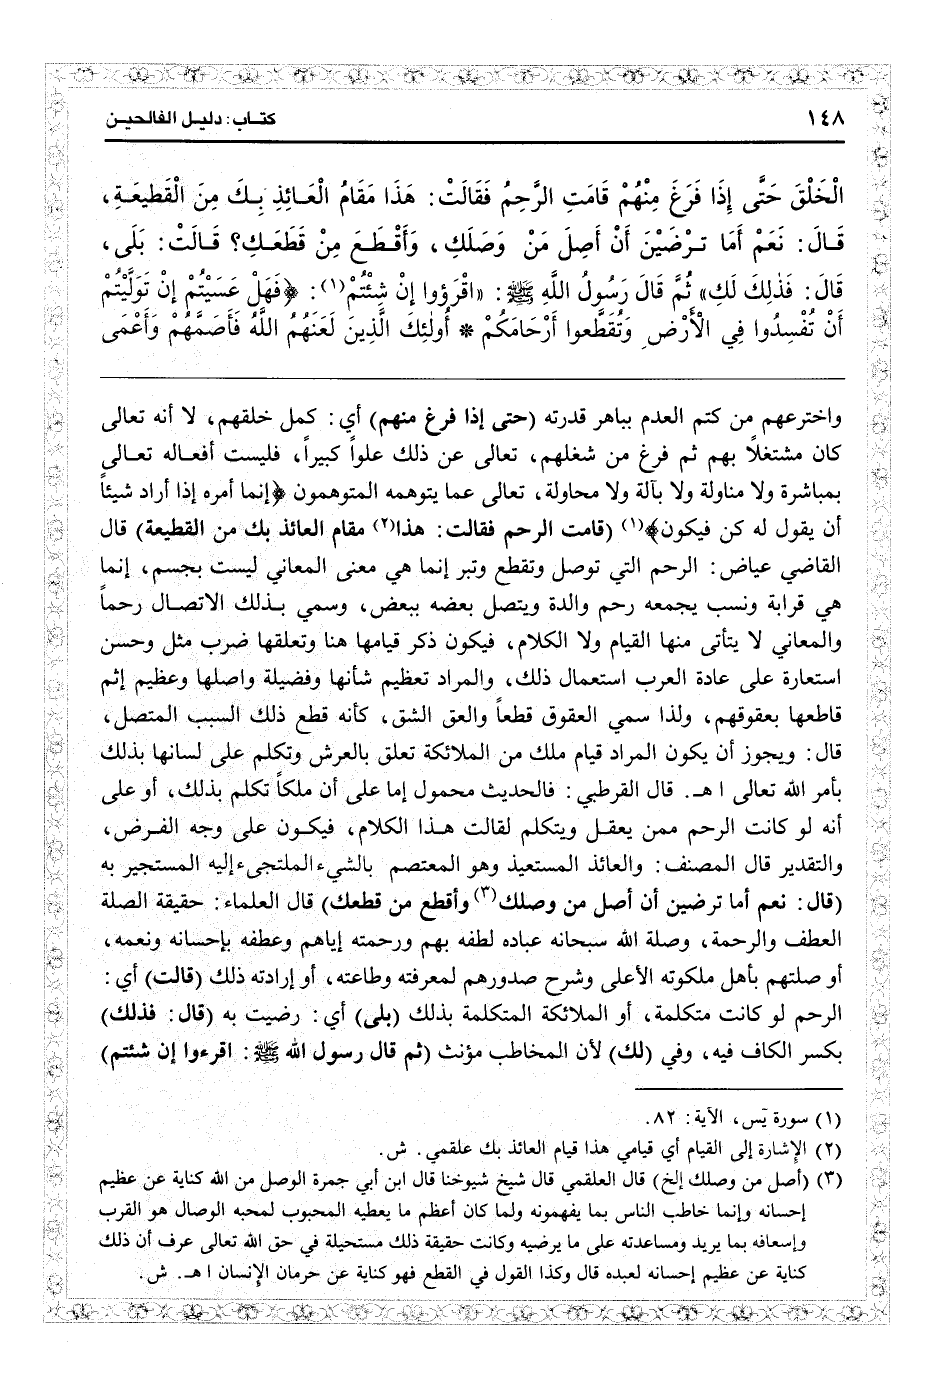 ١٤٨
كتاب: دليل الفالحين
الْخَلْقَ حَتَّى إِذَا فَرَغَ مِنْهُمْ قَامَتِ الرَّحِمُ فَقَالَتْ: هَذَا مَقَامُ الْعَائِذِ بِكَ مِنَ الْقَطِيعَةِ،
قَالَ: نَعَمْ أَمَا تَرْضَيْنَ أَنْ أَصِلَ مَنْ وَصَلَكِ، وَأَقْطَعَ مِنْ قَطَعَكِ؟ قَالَتْ: بَلَى،
قَالَ: فَذٰلِكَ لَكِ» ثُمَّ قَالَ رَسُولُ اللَّهِ ﷺ: «اقْرَؤوا إِنْ شِئْتُمْ(١): ﴿فَهَلْ عَسَيْتُمْ إِنْ تَوَلَّيْتُمْ
أَنْ تُفْسِدُوا فِي الْأَرْضِ وَتُقَطَّعوا أَرْحَامَكُمْ * أُولٰئِكَ الَّذِينَ لَعَنَهُمُ اللَّهُ فَأَصَمَّهُمْ وَأَعْمَى
واخترعهم من كتم العدم بباهر قدرته (حتى إذا فرغ منهم) أي: كمل خلقهم، لا أنه تعالى
كان مشتغلاً بهم ثم فرغ من شغلهم، تعالى عن ذلك علواً كبيراً، فليست أفعاله تعالى
بمباشرة ولا مناولة ولا بآلة ولا محاولة، تعالى عما يتوهمه المتوهمون ﴿إنما أمره إذا أراد شيئاً
أن يقول له كن فيكون﴾(١) (قامت الرحم فقالت: هذا(٢) مقام العائذ بك من القطيعة) قال
القاضي عياض: الرحم التي توصل وتقطع وتبر إنما هي معنى المعاني ليست بجسم، إنما
هي قرابة ونسب يجمعه رحم والدة ويتصل بعضه ببعض، وسمي بذلك الاتصال رحماً
والمعاني لا يتأتى منها القيام ولا الكلام، فيكون ذكر قيامها هنا وتعلقها ضرب مثل وحسن
استعارة على عادة العرب استعمال ذلك، والمراد تعظيم شأنها وفضيلة واصلها وعظيم إثم
قاطعها بعقوقهم، ولذا سمي العقوق قطعاً والعق الشق، كأنه قطع ذلك السبب المتصل،
قال: ويجوز أن يكون المراد قيام ملك من الملائكة تعلق بالعرش وتكلم على لسانها بذلك
بأمر الله تعالى ا هـ. قال القرطبي: فالحديث محمول إما على أن ملكاً تكلم بذلك، أو على
أنه لو كانت الرحم ممن يعقل ويتكلم لقالت هذا الكلام، فيكون على وجه الفرض،
والتقدير قال المصنف: والعائذ المستعيذ وهو المعتصم بالشيء الملتجىء إليه المستجير به
(قال: نعم أما ترضين أن أصل من وصلك(٣) وأقطع من قطعك) قال العلماء: حقيقة الصلة
العطف والرحمة، وصلة الله سبحانه عباده لطفه بهم ورحمته إياهم وعطفه بإحسانه ونعمه،
أو صلتهم بأهل ملكوته الأعلى وشرح صدورهم لمعرفته وطاعته، أو إرادته ذلك (قالت) أي:
الرحم لو كانت متكلمة، أو الملائكة المتكلمة بذلك (بلى) أي: رضيت به (قال: فذلك)
بكسر الكاف فيه، وفي (لك) لأن المخاطب مؤنث (ثم قال رسول الله ﷺ: اقرءوا إن شئتم)
(١) سورة يٓس، الآية: ٨٢.
(٢) الإشارة إلى القيام أي قيامي هذا قيام العائذ بك علقمي. ش.
(٣) (أصل من وصلك إلخ) قال العلقمي قال شيخ شيوخنا قال ابن أبي جمرة الوصل من الله كناية عن عظيم
إحسانه وإنما خاطب الناس بما يفهمونه ولما كان أعظم ما يعطيه المحبوب لمحبه الوصال هو القرب
وإسعافه بما يريد ومساعدته على ما يرضيه وكانت حقيقة ذلك مستحيلة في حق الله تعالى عرف أن ذلك
كناية عن عظيم إحسانه لعبده قال وكذا القول في القطع فهو كناية عن حرمان الإنسان ا هـ. ش.